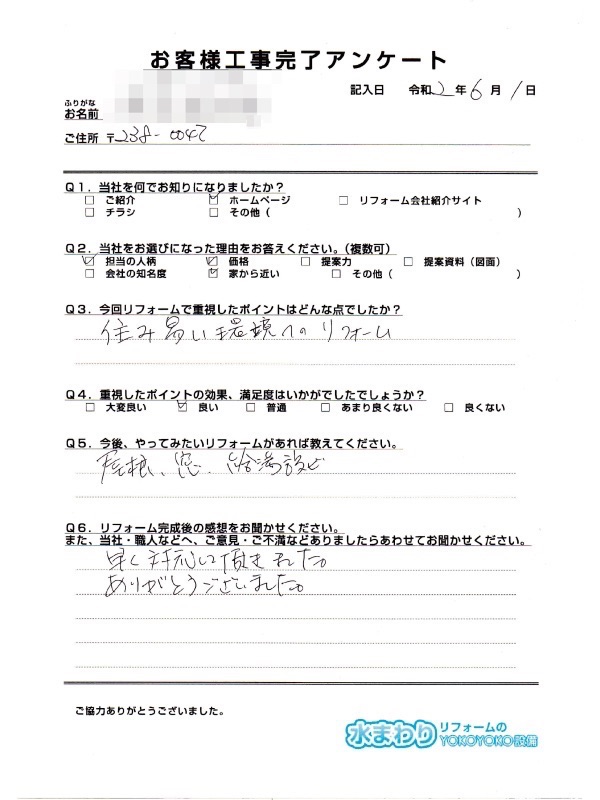 お客様工事完了アンケート
記入日 令和2年6月1日
ふりがな
お名前
ご住所 〒238-0047
Q1．当社を何でお知りになりましたか？
□ ご紹介 ☑ ホームページ □ リフォーム会社紹介サイト
□ チラシ □ その他（ ）
Q2．当社をお選びになった理由をお答えください。（複数可）
☑ 担当の人柄 ☑ 価格 □ 提案力 □ 提案資料（図面）
□ 会社の知名度 ☑ 家から近い □ その他（ ）
Q3．今回リフォームで重視したポイントはどんな点でしたか？
住み易い環境へのリフォーム
Q4．重視したポイントの効果、満足度はいかがでしたでしょうか？
□ 大変良い ☑ 良い □ 普通 □ あまり良くない □ 良くない
Q5．今後、やってみたいリフォームがあれば教えてください。
屋根、窓、給湯設ビ
Q6．リフォーム完成後の感想をお聞かせください。
また、当社・職人などへ、ご意見・ご不満などありましたらあわせてお聞かせください。
早く対応して頂きました。
ありがとうございました。
ご協力ありがとうございました。
水まわりリフォームのYOKOYOKO設備